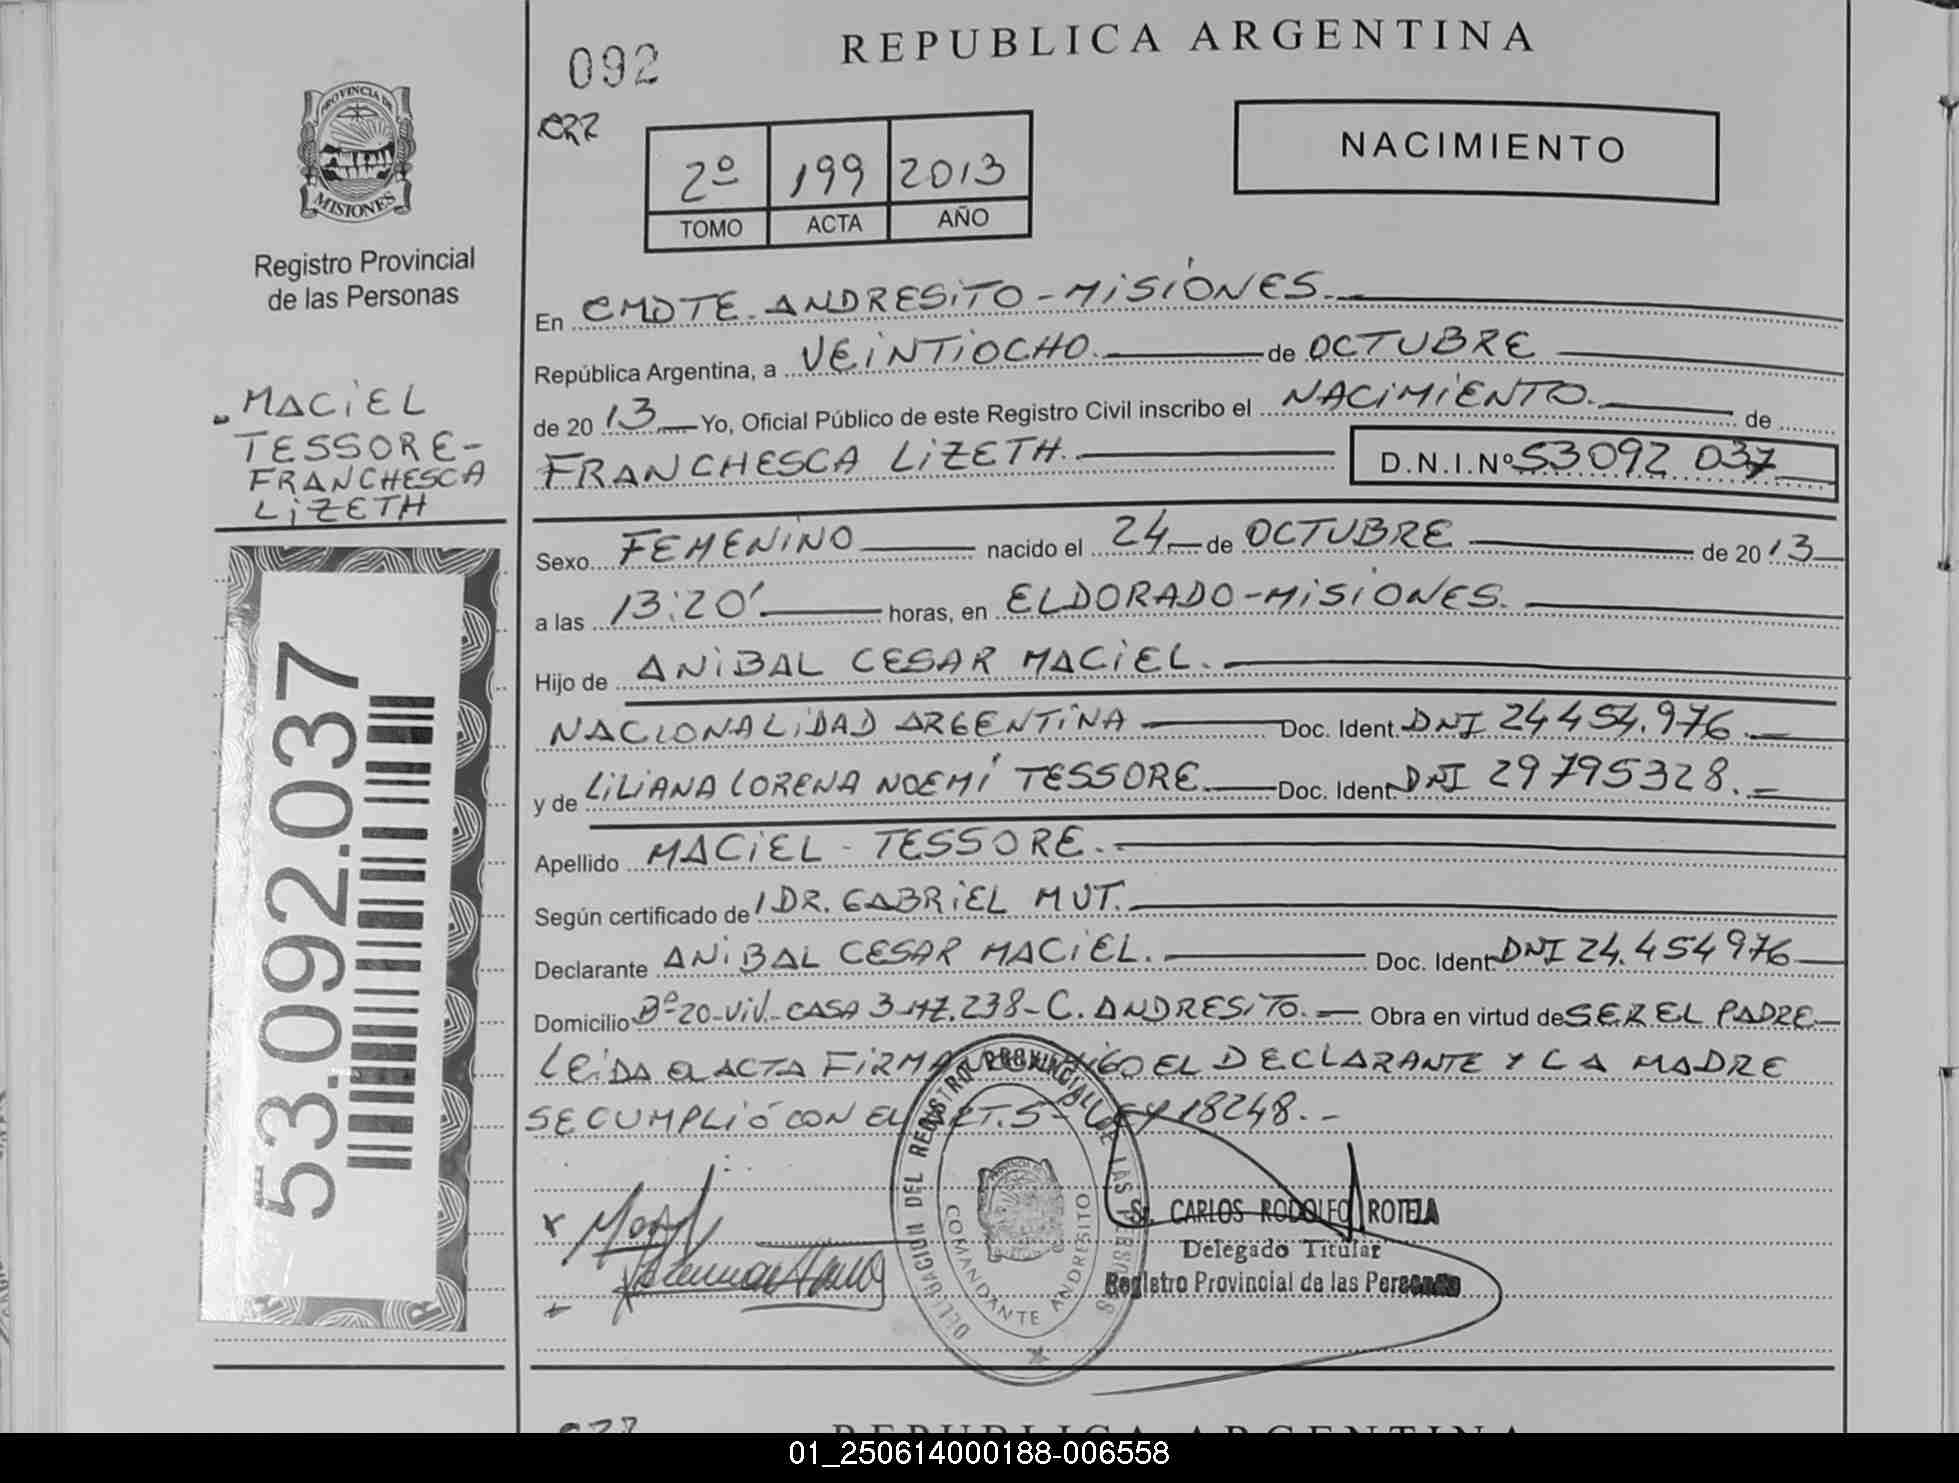 REPUBLICA ARGENTINA
092
CRR
NACIMIENTO
2º 199 2013
TOMO ACTA AÑO
PROVINCIA DE
MISIONES
Registro Provincial
de las Personas
MACIEL
TESSORE-
FRANCHESCA
LIZETH
53.092.037
En CMDTE. ANDRESITO - MISIONES.
República Argentina, a VEINTIOCHO. de OCTUBRE
de 2013 Yo, Oficial Público de este Registro Civil inscribo el NACIMIENTO. de
FRANCHESCA LIZETH. D.N.I.Nº 53092 037
Sexo FEMENINO nacido el 24 de OCTUBRE de 2013
a las 13:20' horas, en ELDORADO-MISIONES.
Hijo de ANIBAL CESAR MACIEL.
NACIONALIDAD ARGENTINA Doc. Ident. DNI 24454.976.
y de LILIANA LORENA NOEMÍ TESSORE. Doc. Ident. DNI 29795328.
Apellido MACIEL - TESSORE.
Según certificado de DR. GABRIEL MUT.
Declarante ANIBAL CESAR MACIEL. Doc. Ident. DNI 24.454976
Domicilio Bº 20-VIV.-CASA 3-MZ.238-C. ANDRESITO. Obra en virtud de SER EL PADRE
LEIDA EL ACTA FIRMA EL DECLARANTE Y LA MADRE
SE CUMPLIÓ CON EL ART.5- LEY 18248.-
DELEGACION DEL REGISTRO PROVINCIAL DE LAS PERSONAS
COMANDANTE ANDRESITO
Sr. CARLOS RODOLFO ROTELA
Delegado Titular
Registro Provincial de las Personas
REPUBLICA ARGENTINA
01_250614000188-006558